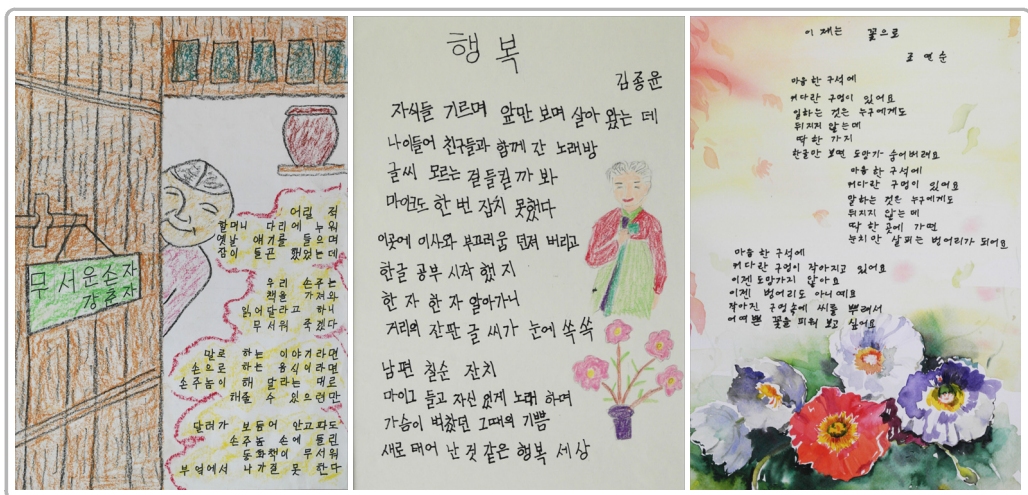 무서운손자
강춘자
어릴 적
할머니 다리에 누워
옛날 얘기를 들으며
잠이 들곤 했었는데
우리 손주는
책을 가져와
읽어달라고 하니
무서워 죽겠다
말로 하는 이야기라면
손으로 하는 음식이라면
손주놈이 해 달라는 대로
해줄 수 있으련만
달려가 보듬어 안고파도
손주놈 손에 들린
동화책이 무서워
부엌에서 나가질 못 한다
행복
김종윤
자식들 기르며 앞만 보며 살아 왔는 데
나이들어 친구들과 함께 간 노래방
글씨 모르는 걸 들킬 까 봐
마이크도 한 번 잡지 못했다
이곳에 이사와 부끄러움 던져 버리고
한글 공부 시작 했 지
한 자 한 자 알아가니
거리의 간판 글 씨가 눈에 쏙 쏙
남편 칠순 잔치
마이크 들고 자신 있게 노래 하며
가슴이 벅찼던 그때의 기쁨
새로 태어 난 것 같은 행복 세상
이제는 꽃으로
조연순
마음 한 구석에
커다란 구멍이 있어요
일하는 것은 누구에게도
뒤지지 않는데
딱 한 가지
한글만 보면 도망가 숨어버려요
마음 한 구석에
커다란 구멍이 있어요
말하는 것은 누구에게도
뒤지지 않는 데
딱 한 곳에 가면
눈치만 살피는 벙어리가 되어요
마음 한 구석에
커다란 구멍이 작아지고 있어요
이젠 도망가지 않아요
이젠 벙어리도 아니예요
작아진 구멍속에 씨를 뿌려서
어여쁜 꽃을 피워 보고 싶어요